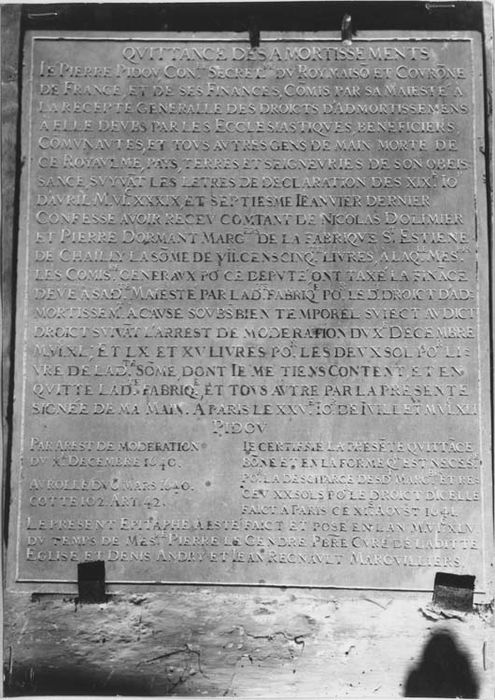 QVITTANCE DES AMORTISSEMENTS
IE PIERRE PIDOV CON.ER SECRET.RE DV ROY, MAISŌ ET COVRŌNE
DE FRANCE, ET DE SES FINANCES, COMIS PAR SA MAIESTÉ A
LA RECEPTE GENERALLE DES DROICTS D'ADMORTISSEMENS
A ELLE DEVBS PAR LES ECCLESIASTIQVES, BENEFICIERS,
COMVNAVTES, ET TOVS AVTRES GENS DE MAIN MORTE DE
CE ROYAVLME, PAYS, TERRES ET SEIGNEVRIES DE SON OBEIS
SANCE, SVYVĀT LES LETRES DE DECLARATION DES XIX.E IO
D'AVRIL M.VI.XXXIX ET SEPTIESME IEANVIER DERNIER
CONFESSE AVOIR RECEV COMTANT DE NICOLAS DOLIMIER
ET PIERRE DORMANT MARG.ERS DE LA FABRIQVE S.T ESTIENE
DE CHAILLY LA SŌME DE VII CENS CINQ.TE LIVRES, A LAQ.LE MES.RS
LES COMIS.RES GENERAVX PO.R CE DEPVTÉ ONT TAXÉ LA FINĀCE
DEVE A SAD.E MAIESTÉ PAR LAD.E FABRIQ.E PO.R LE D.DROICT D'AD
MORTISSEM.T A CAVSE SOVBS BIEN TEMPOREL SVIECT AVDICT
DROICT SVIVĀT L'ARREST DE MODERATION DV X.E DECEMBRE
M.VI.XL, ET LX ET XV LIVRES PO.R LES DEVX SOL PO.R LI
VRE DE LAD.E SŌME DONT IE ME TIENS CONTENT ET EN
QVITTE LAD.E FABRIQ.E ET TOVS AVTRE PAR LA PRESENTE
SIGNÉE DE MA MAIN. A PARIS LE XXVI.E IO.R DE IVILLET M.VI.XLI
PIDOV
PAR AREST DE MODERATION
DV X.E DECEMBRE 1640.
AV ROLLE DV 6 MARS 1640.
COTTE 102. ART. 42.
IE CERTIFFIE LA PRESĒTE QVITTĀCE
BŌNE ET EN LA FORME QV'EST NECESS.
PO.R LA DESCHARGE DESD. MARG.RS ET RE
CEV XX SOLS PO.R LE DROICT D'ICELLE
FAICT A PARIS CE XII.E AOVST 1641.
LE PRESENT EPITAPHE A ESTÉ FAICT ET POSÉ EN L'AN M.VI.XLV
DV TEMPS DE MES.RE PIERRE LE GENDRE PB̄RE CVRÉ DE LADITTE
EGLISE ET DENIS ANDRY ET IEAN REGNAVLT MARGVILLIERS.